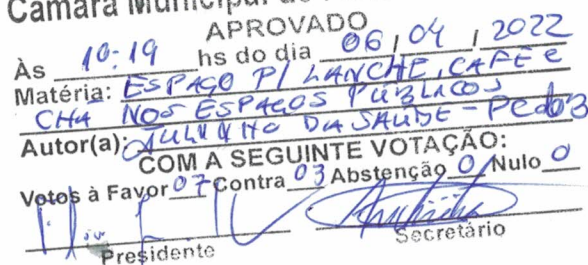 Câmara Municipal de
APROVADO
Às 10:19 hs do dia 06/04/2022
Matéria: ESPAÇO P/ LANCHE, CAFÉ e
CHÁ NOS ESPAÇOS PÚBLICOS
Autor(a): DA SAÚDE -
COM A SEGUINTE VOTAÇÃO:
Votos à Favor 07 Contra 03 Abstenção 0 Nulo 0
Presidente
Secretário